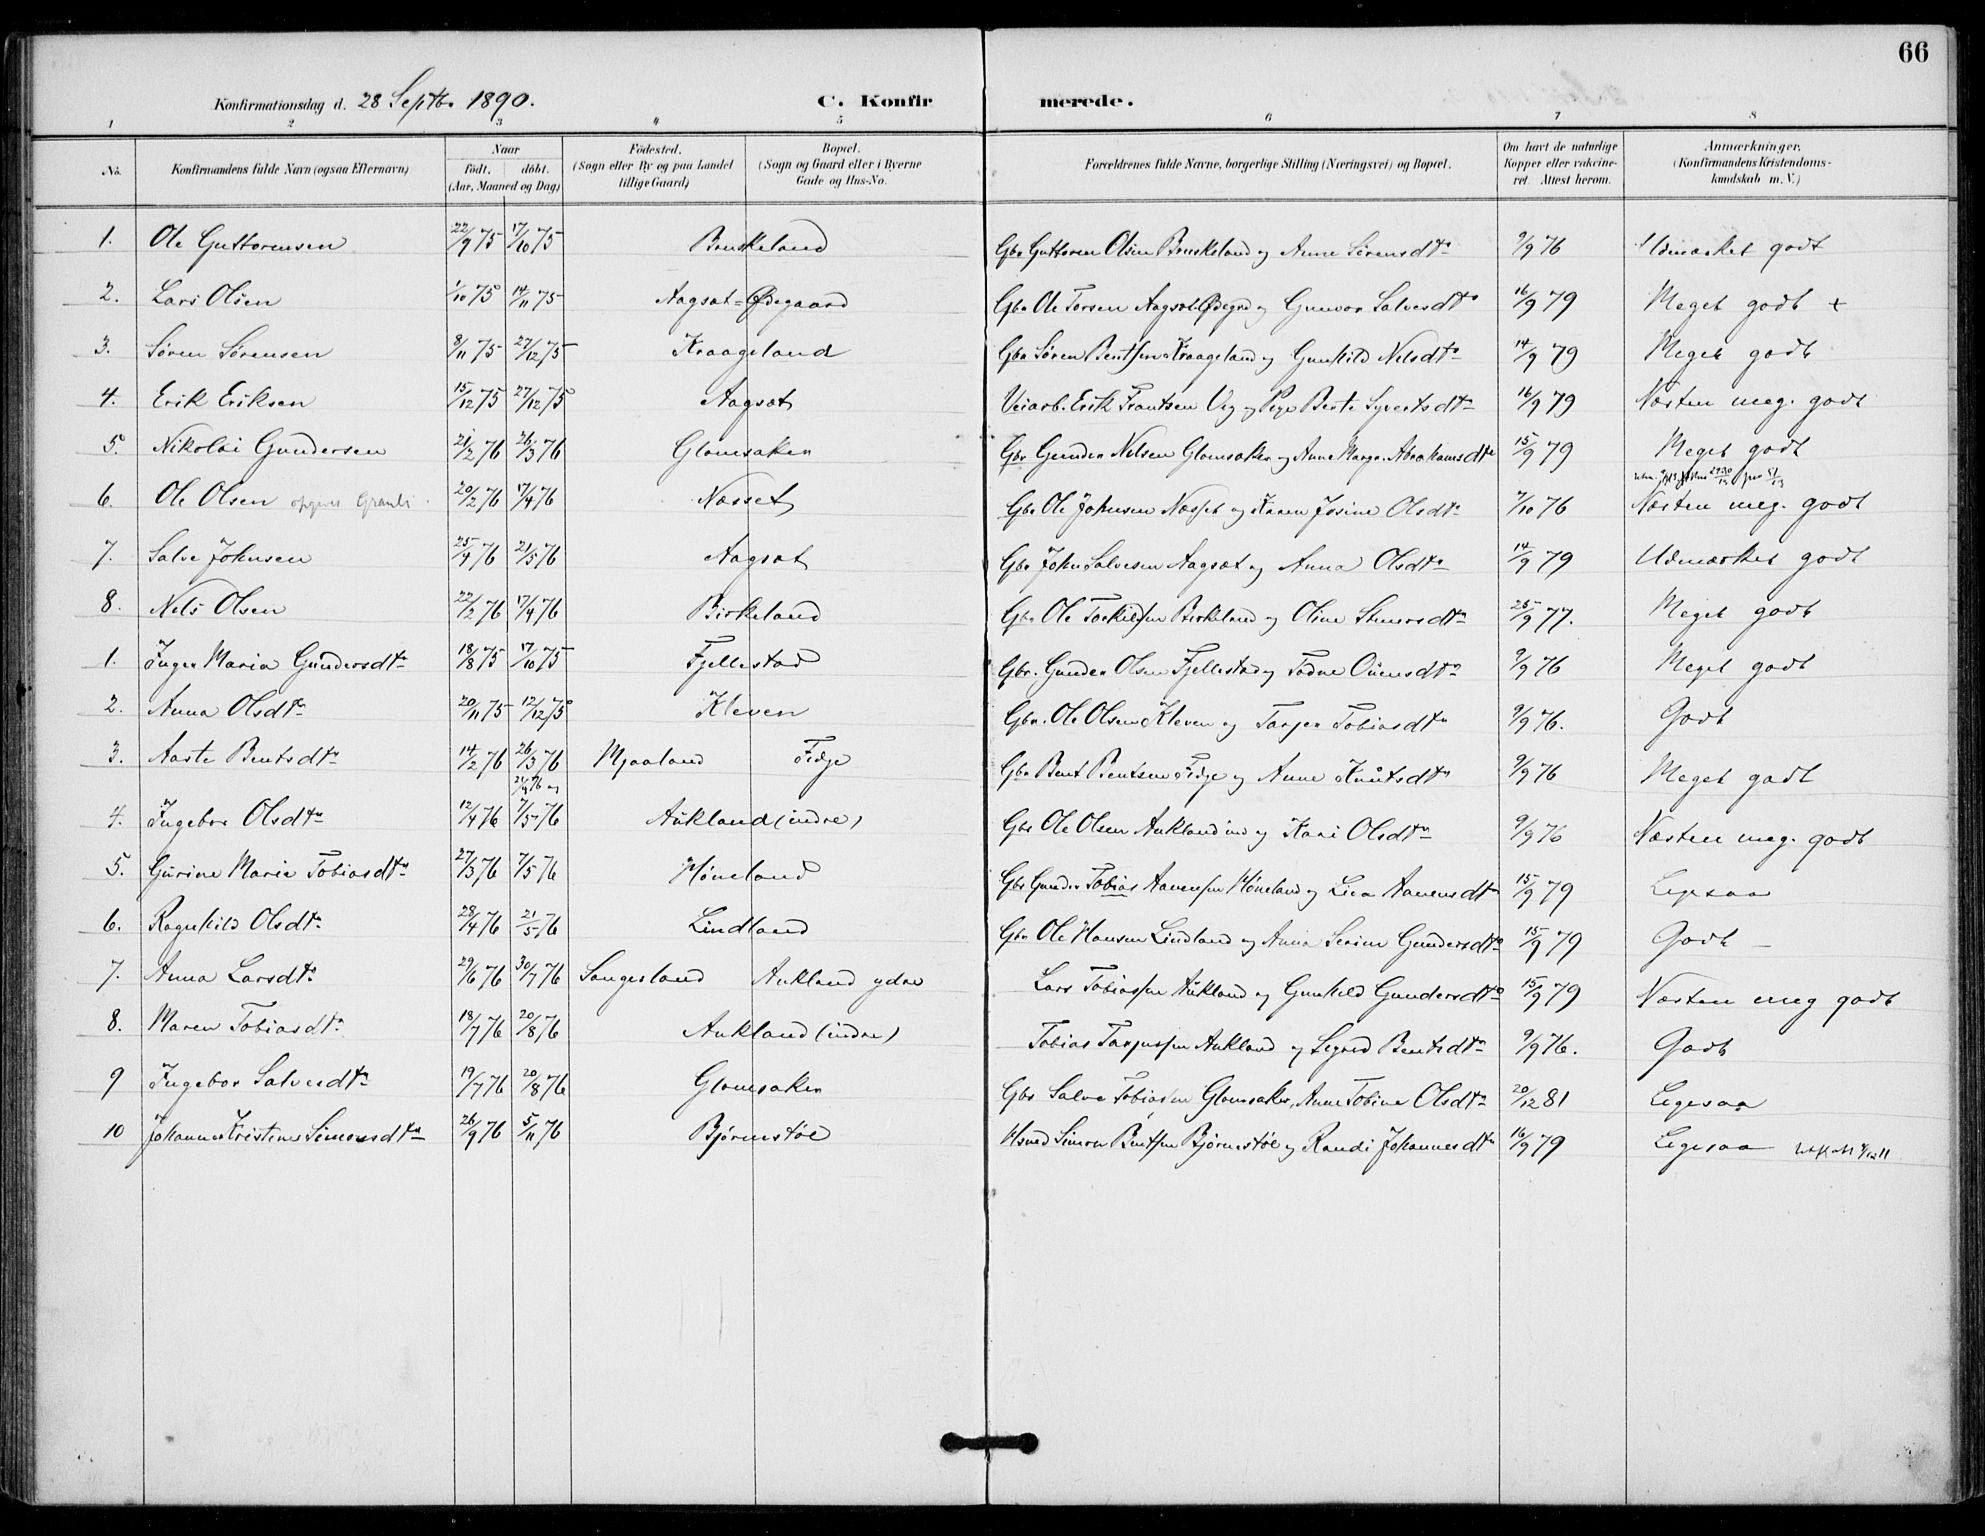 66
Konfirmationsdag d. 28 Septb. 1890. C. Konfir merede.
1 2 3 4 5 6 7 8
No. Konfirmandens fulde Navn (ogsaa Efternavn) Naar födt. döbt. (Aar, Maaned og Dag) Födested. (Sogn eller By og paa Landet tillige Gaard) Bopæl. (Sogn og Gaard eller i Byerne Gade og Hus-No. Forældrenes fulde Navne, borgerlige Stilling (Næringsvei) og Bopæl. Om havt de naturlige Kopper eller vakcineret. Attest herom. Anmærkninger. (Konfirmandens Kristendomskundskab m. V.)
1. Ole Guttormsen 22/9 75 17/10 75 Bruskeland Gbr Guttorm Olsen Bruskeland og Anne Sørensdtr 9/9 76 Udmærket godt
2. Lars Olsen 1/10 75 14/11 75 Aagsæt-Ødegaard Gbr Ole Torsen Aagsæt Ødegrd og Gunvor Salvesdtr 16/9 79 Meget godt +
3. Søren Sørensen 8/11 75 27/12 75 Kraageland Gbr Søren Bentsen Kraageland og Gunhild Nelsdtr 14/9 79 Meget godt
4. Erik Eriksen 15/12 75 27/12 75 Aagsæt Veiarb. Erik Frantsen og Pige Berte Syvertsdtr 16/9 79 Næsten meg. godt
5. Nikolai Gundersen 21/2 76 26/3 76 Glomsaker Gbr Gunder Nelsen Glomsaker og Anne Margr. Abrahamsdtr 15/9 79 Meget godt
6. Ole Olsen 20/2 76 17/4 76 Næsset Gbr Ole Johnsen Næsset og Karen Josine Olsdtr 7/10 76 Næsten meg. godt
7. Salve Johnsen 25/4 76 21/5 76 Aagsæt Gbr John Salvesen Aagsæt og Anna Olsdtr 14/9 79 Udmærket godt
8. Nels Olsen 22/2 76 17/4 76 Birkeland Gbr Ole Torkildsen Birkeland og Oline 25/9 77. Meget godt
1. Inger Maria Gundersdtr 18/8 75 17/10 75 Fjellestad Gbr. Gunder Olsen Fjellestad og Todne Ouensdtr 9/9 76 Meget godt
2. Anna Olsdtr 20/11 75 12/12 75 Kleven Gbr. Ole Olsen Kleven og Tarjer Tobiasdtr 9/9 76. Godt
3. Aaste Bentsdtr 14/2 76 26/3 76 Mjaaland Fidje Gbr Bent Bentsen Fidje og Anne Knutsdtr 9/9 76 Meget godt
4. Ingebor Olsdtr 12/4 76 21/4 76 og 7/5 76 Aukland (indre) Gbr Ole Olsen Aukland ind og Kari Olsdtr 9/9 76 Næsten meg. godt
5. Gurine Marie Tobiasdtr 27/3 76 7/5 76 Høneland Gbr Gunder Tobias Aanensen Høneland og Liva Aanensdtr 15/9 79 Ligesaa
6. Ragnhild Olsdtr 28/4 76 21/5 76 Lindland Gbr Ole Hansen Lindland og Anna Serine Gundersdtr 15/9 79 Godt
7. Anna Larsdtr 29/6 76 30/7 76 Sangesland Aukland ydre Lars Tobiassen Aukland og Gunhild Gundersdtr 15/9 79 Næsten meg godt
8. Maren Tobiasdtr 18/7 76 20/8 76 Aukland (indre) Tobias Tarjussen Aukland og Segred Bentsdtr 9/9 76. Godt
9 Ingebor Salvesdtr 19/7 76 20/8 76 Glomsaker Gbr Salve Tobiassen Glomsaker, Anne Tobine Olsdtr 20/12 81 Ligesaa
10 Johanne Kristine Simonsdtr 26/9 76 5/11 76 Bjørnstøl Hsmd Simon Bentsen Bjørnstøl og Randi Johannesdtr 16/9 79 Ligesaa